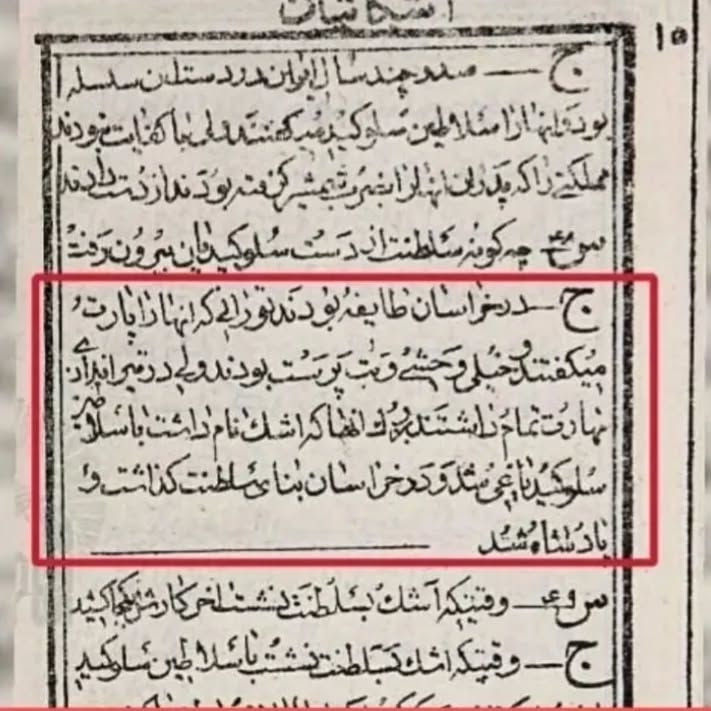 اشکانیان
۱۵
ج — صد و چند سال ایران در دست این سلسله
بود و آنها را سلاطین سلوکید میگفتند ولی با کفایت نبودند
مملکتی را که پدران آنها را بضرب شمشیر گرفته بودند از دست دادند
س — چه گونه سلطنت از دست سلوکیدیان بیرون رفت
ج — در خراسان طایفهٔ بودند تورانی که آنها را پارت
میگفتند و خیلی وحشی و بت پرست بودند ولی در تیراندازی
مهارت تمام داشتند بزرگ آنها که اشک نام داشت با سلاطین
سلوکید یاغی شد و در خراسان بنای سلطنت گذاشت و
پادشاه شد
س — وقتیکه اشک بسلطنت نشست آخر کارش بکجا کشید
ج — وقتیکه اشک بسلطنت نشست با سلاطین سلوکید